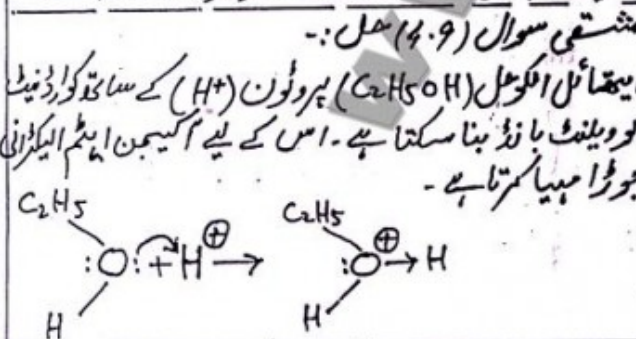 مشقی سوال (4.9) حل :-
ایتھائل الکوحل (C2H5OH) پروٹون (H+) کے ساتھ کوارڈینیٹ
کوویلنٹ بانڈ بنا سکتا ہے۔ اس کے لیے آکسیجن ایٹم الیکٹرانی
جوڑا مہیا کرتا ہے۔
C2H5 C2H5
:O: + H⊕ → :O⊕ → H
H H